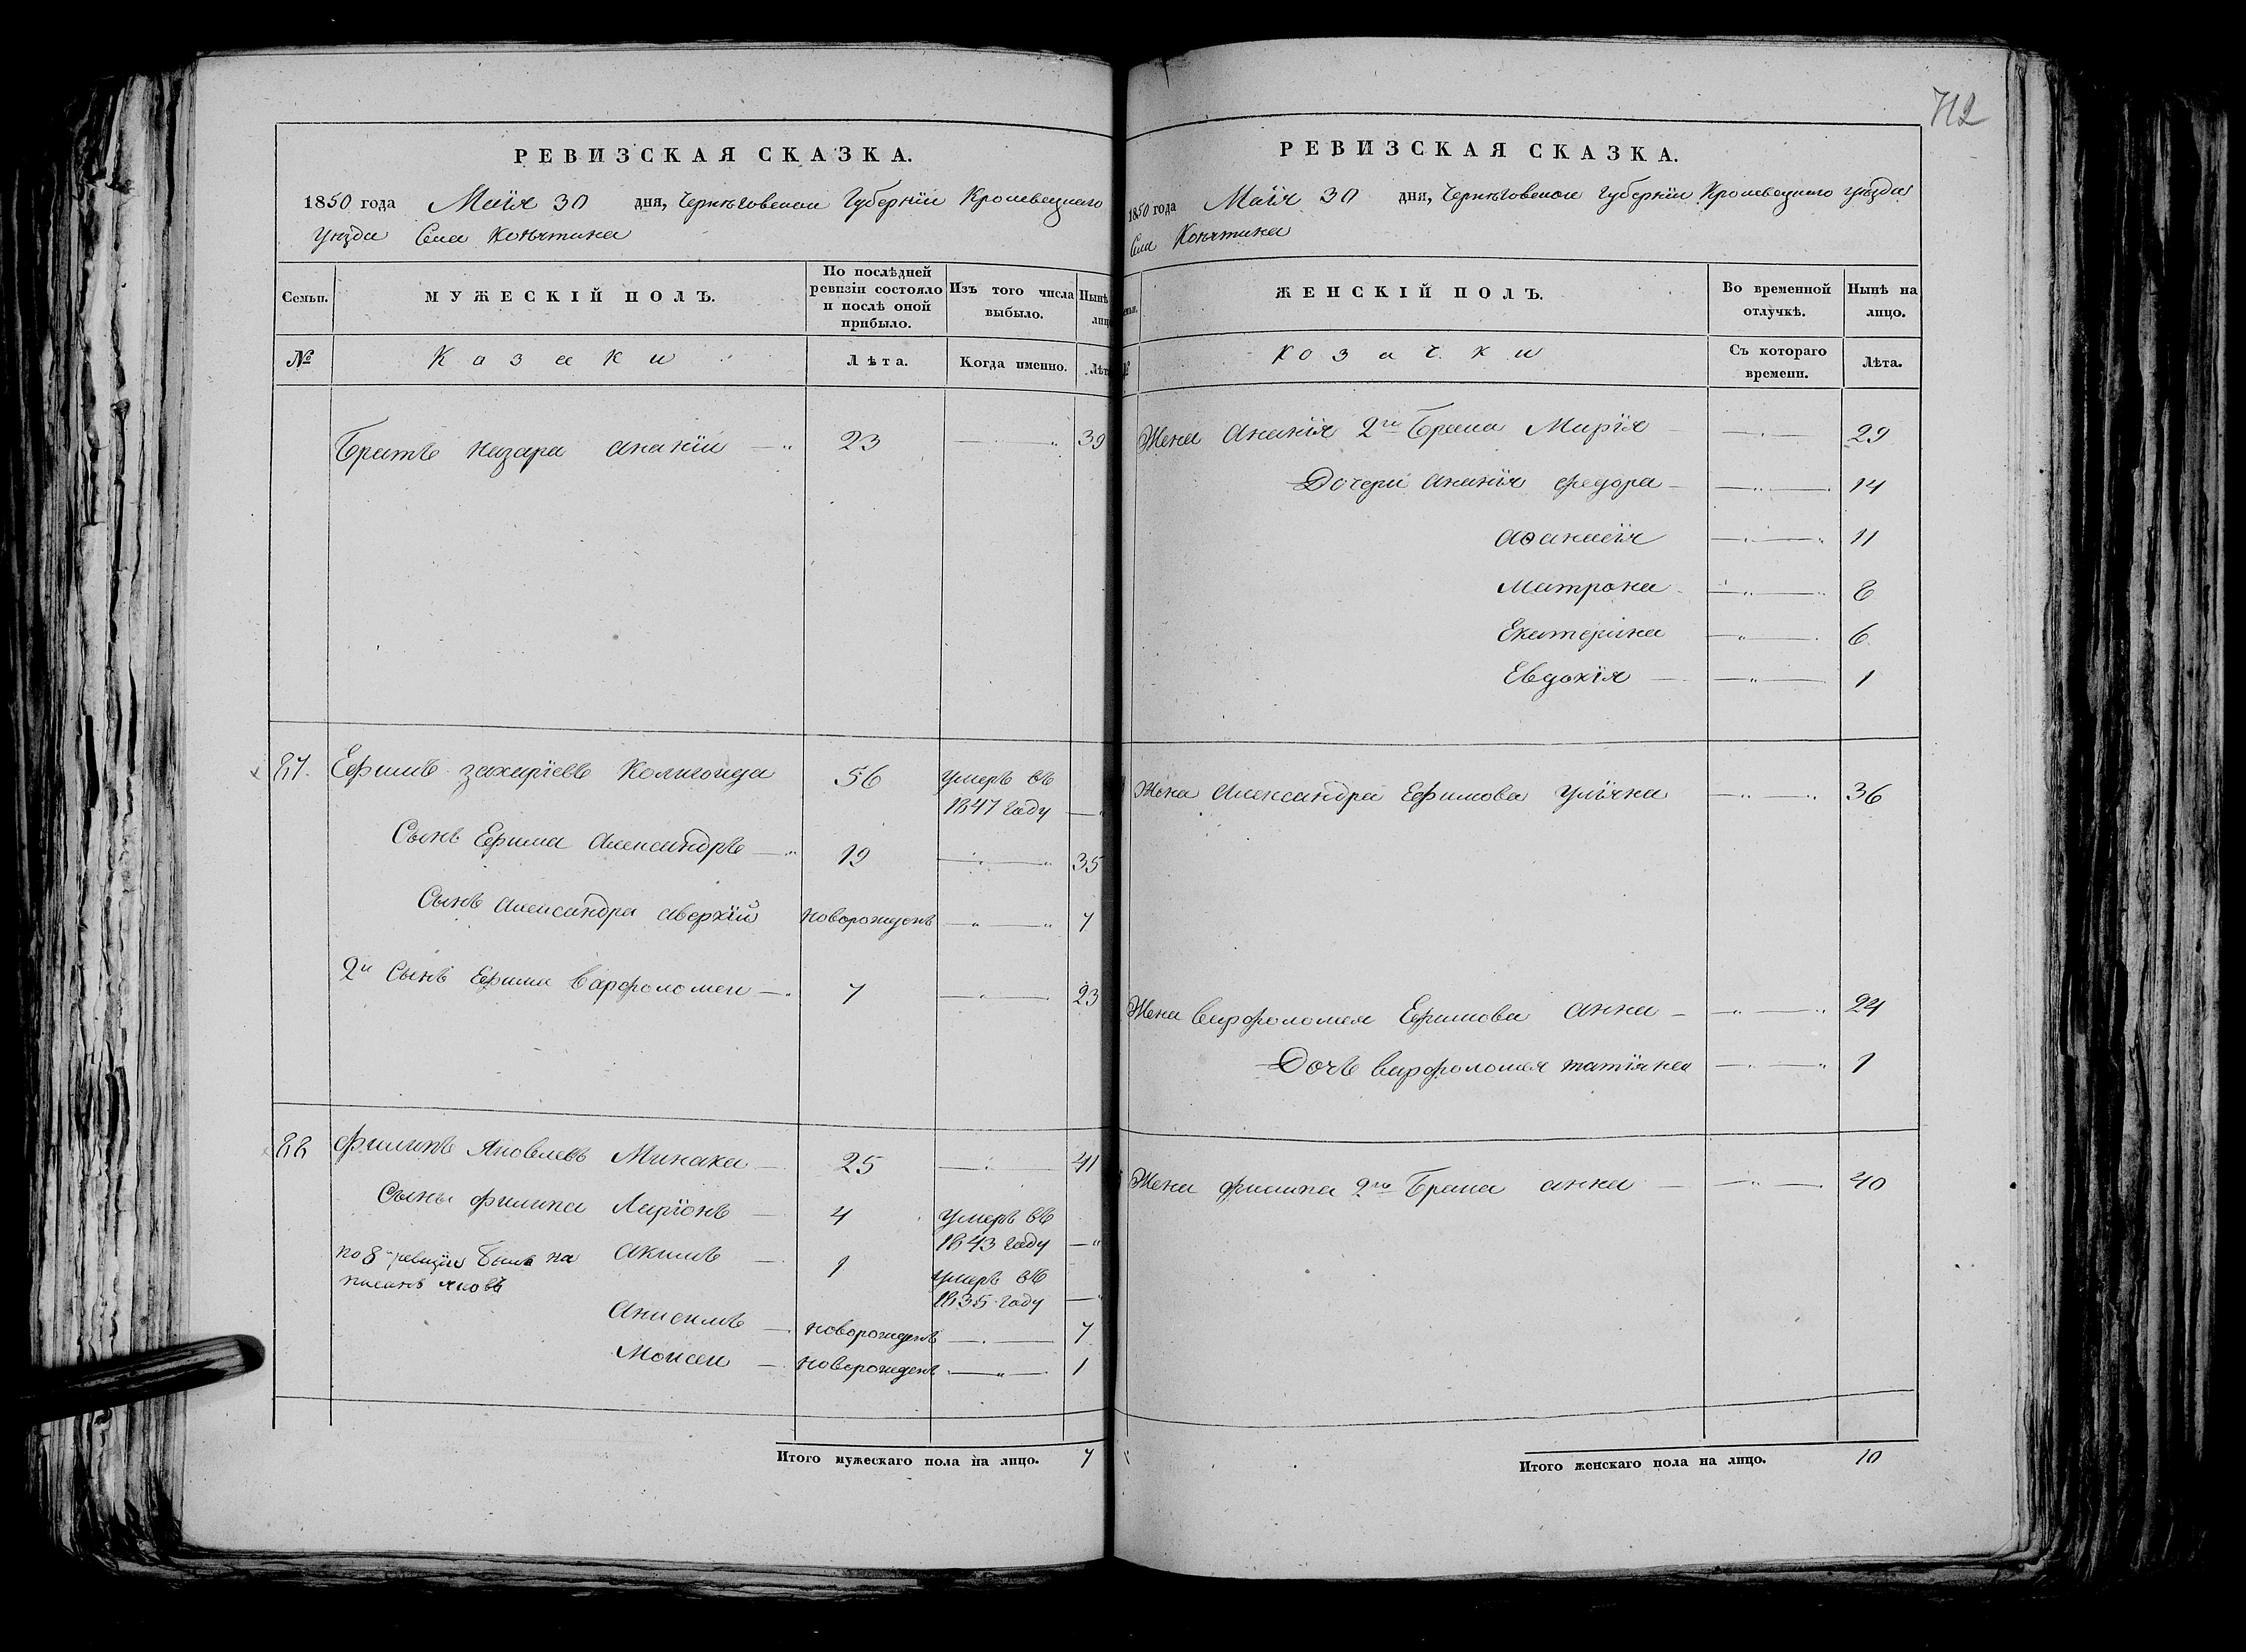 712
РЕВИЗСКАЯ СКАЗКА.
1850 года Маія 30 дня, Черниговской Губерніи Кролевецкаго
уѣзда Села
МУЖЕСКІЙ ПОЛЪ.
Семьи.
По послѣдней ревизіи состояло и послѣ оной прибыло.
Изъ того числа выбыло.
Нынѣ лицо
№
Козаки
Лѣта.
Когда именно.
Лѣта
Братъ Назара Ананій 23 39
87. Ефимъ Захаріевъ 56 умеръ въ
1847 году
Сынъ Ефима Александръ 19 35
Сынъ Александра Аверкій новорожденъ 7
2й Сынъ Ефима Варфоломей 7 23
88 Филипъ Яковлевъ Минака 25 41
Сыны Филипа Ларіонъ 4 умеръ въ
1843 году
по 8 ревизіи былъ на
писанъ Яковъ
Акимъ 1 умеръ въ
1835 году
Анисимъ новорожденъ 7
Моисей новорожденъ 1
Итого мужескаго пола на лицо. 7
РЕВИЗСКАЯ СКАЗКА.
1850 года Маія 30 дня, Черниговской Губерніи Кролевецкаго уѣзда
Села
ЖЕНСКІЙ ПОЛЪ.
Во временной отлучкѣ.
Нынѣ на лицо.
Козачки
Съ котораго времени.
Лѣта.
Жена Ананія 2го Брака Марія 29
Дочери Ананія Федора 14
Афанасія 11
Матрона 8
Екатерина 6
Евдокія 1
Жена Александра Ефимова Уліяна 36
Жена Варфоломея Ефимова Анна 24
Дочь Варфоломея Татіяна 1
Жена Филипа 2го Брака Анна 40
Итого женскаго пола на лицо. 10